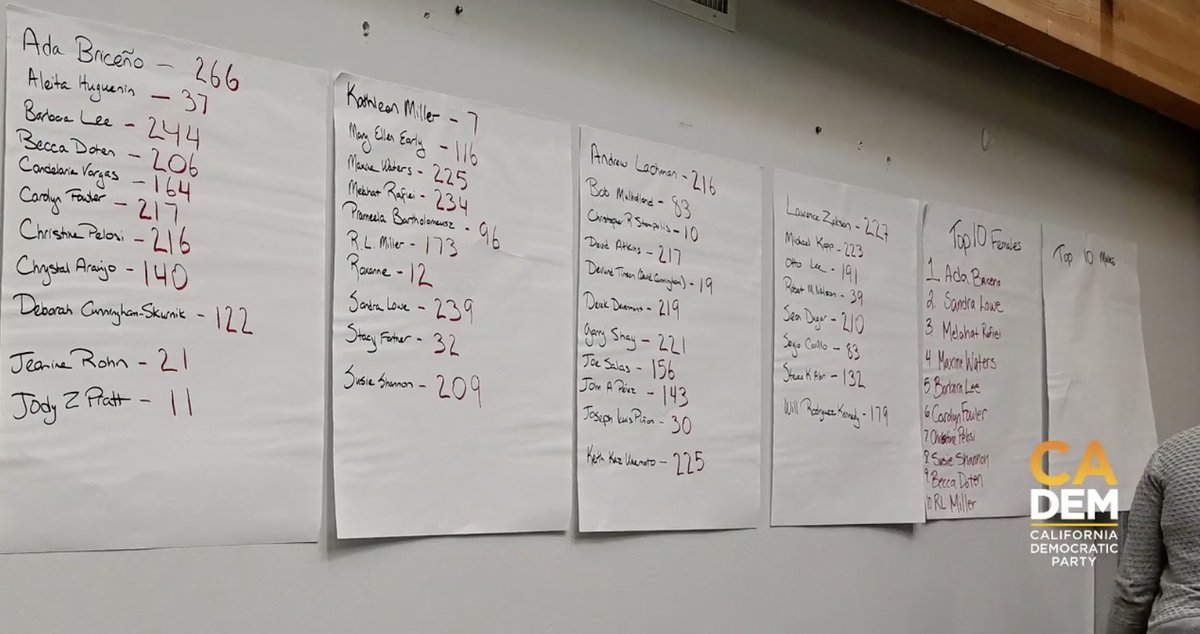 Ada Briceño - 266
Aleita Huguenin - 37
Barbara Lee - 244
Becca Doten - 206
Candelaria Vargas - 164
Carolyn Fowler - 217
Christine Pelosi - 216
Chrystal Araujo - 140
Deborah Cunningham-Skurnik - 122
Jeanine Rohn - 21
Jody Z Platt - 11
Kathleen Miller - 7
Mary Ellen Early - 116
Maxine Waters - 225
Melahat Rafiei - 234
Prameela Bartholomeusz - 96
R.L. Miller - 173
Roxanne - 12
Sandra Lowe - 239
Stacy Fortner - 32
Susie Shannon - 209
Andrew Lachman - 216
Bob Mulholland - 83
Christopher R Stampolis - 10
David Atkins - 217
(David Cunningham) - 19
Derek Devermont - 219
Garry Shay - 221
Joe Salas - 156
John A Pérez - 143
Joseph Luis Piñon - 30
Keith Kaz Umemoto - 225
Laurence Zakson - 227
Michael Kapp - 223
Otto Lee - 191
Robert M Nelson - 39
Sean Dugar - 210
Sergio Carrillo - 83
Steven K - 132
Will Rodriguez Kennedy - 179
Top 10 Females
1. Ada Briceno
2. Sandra Lowe
3 Melahat Rafiei
4 Maxine Waters
5 Barbara Lee
6 Carolyn Fowler
7. Christine Pelosi
8 Susie Shannon
9 Becca Doten
10 RL Miller
Top 10 Males
CA
DEM
CALIFORNIA
DEMOCRATIC
PARTY